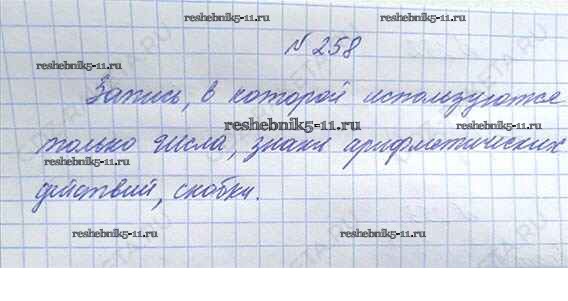 reshebnik5-11.ru reshebnik5-11.ru
№258
reshebnik5-11.ru reshebnik5-11.ru
Запись, в которой используются
reshebnik5-11.ru
только числа, знаки арифметических
reshebnik5-11.ru reshebnik5-11.ru
действий, скобки.
reshebnik5-11.ru reshebnik5-11.ru